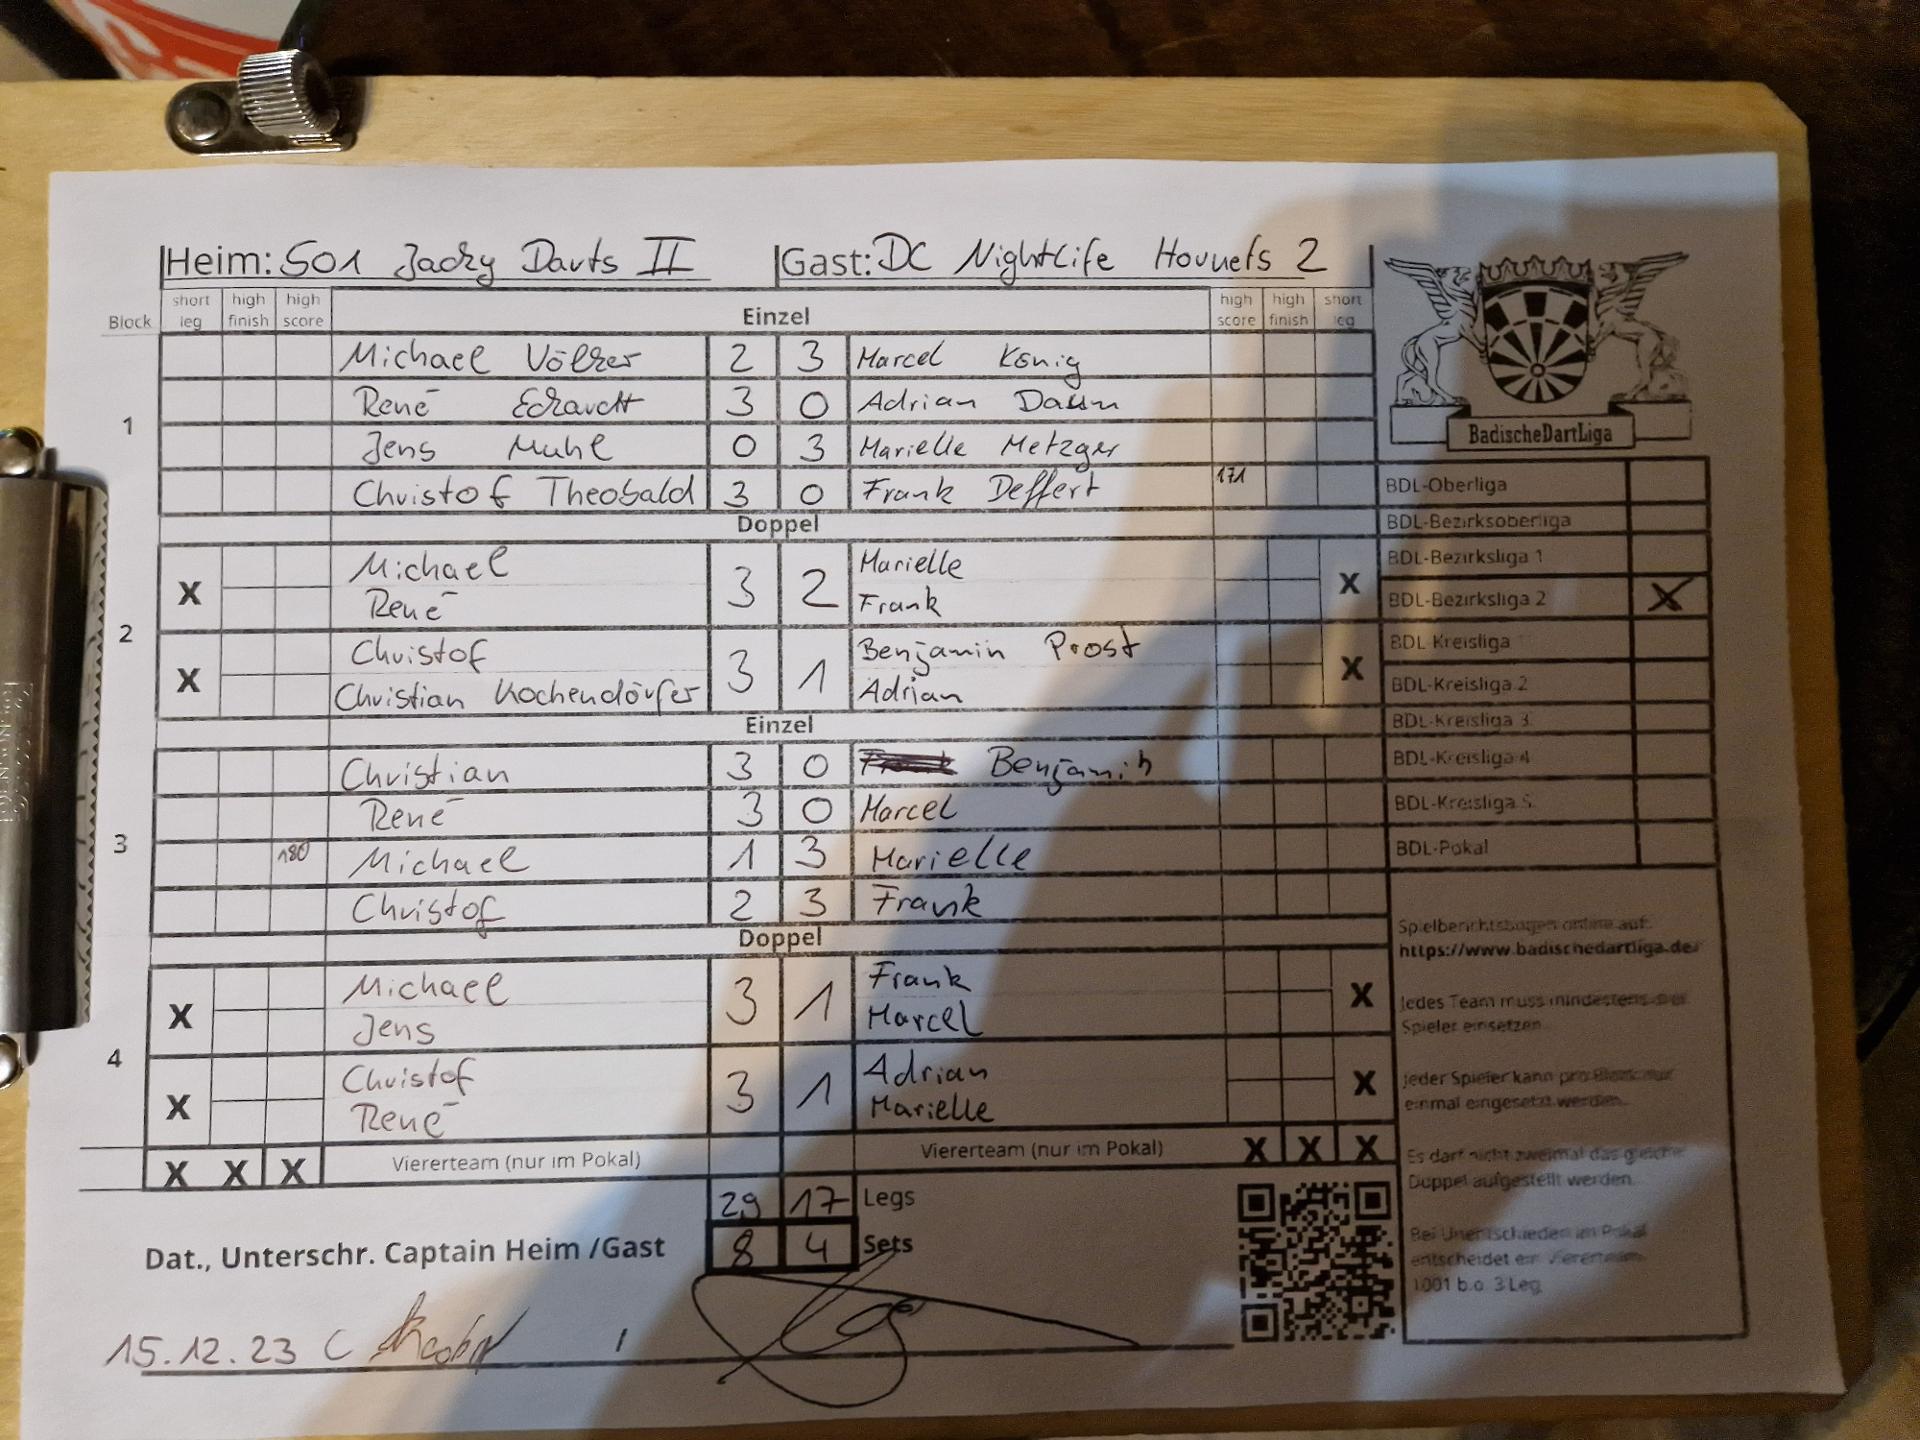 Heim: 501 Jacky Darts II Gast: DC Nightlife Hornets 2
Block short leg high finish high score Einzel high score high finish short leg
1
Michael Völker 2 3 Marcel König
René Eckardt 3 0 Adrian Daum
Jens Muhl 0 3 Marielle Metzger
Christof Theobald 3 0 Frank Deffert 171
Doppel
2
X Michael 3 2 Marielle X
René Frank
X Christof 3 1 Benjamin Prost X
Christian Kochendörfer Adrian
Einzel
3
Christian 3 0 Benjamin
René 3 0 Marcel
180 Michael 1 3 Marielle
Christof 2 3 Frank
Doppel
4
X Michael 3 1 Frank X
Jens Marcel
X Christof 3 1 Adrian X
René Marielle
X X X Vierерteam (nur im Pokal) Viererteam (nur im Pokal) X X X
29 17 Legs
8 4 Sets
Dat., Unterschr. Captain Heim /Gast
15.12.23 C /
BadischeDartLiga
BDL-Oberliga
BDL-Bezirksoberliga
BDL-Bezirksliga 1
BDL-Bezirksliga 2 X
BDL-Kreisliga 1
BDL-Kreisliga 2
BDL-Kreisliga 3
BDL-Kreisliga 4
BDL-Kreisliga 5
BDL-Pokal
Spielberichtsbogen online auf:
https://www.badischedartliga.de/
Jedes Team muss mindestens vier
Spieler einsetzen.
Jeder Spieler kann pro Block nur
einmal eingesetzt werden.
Es darf nicht zweimal das gleiche
Doppel aufgestellt werden.
Bei Unentschieden im Pokal
entscheidet ein Viererteam
1001 b.o. 3 Leg